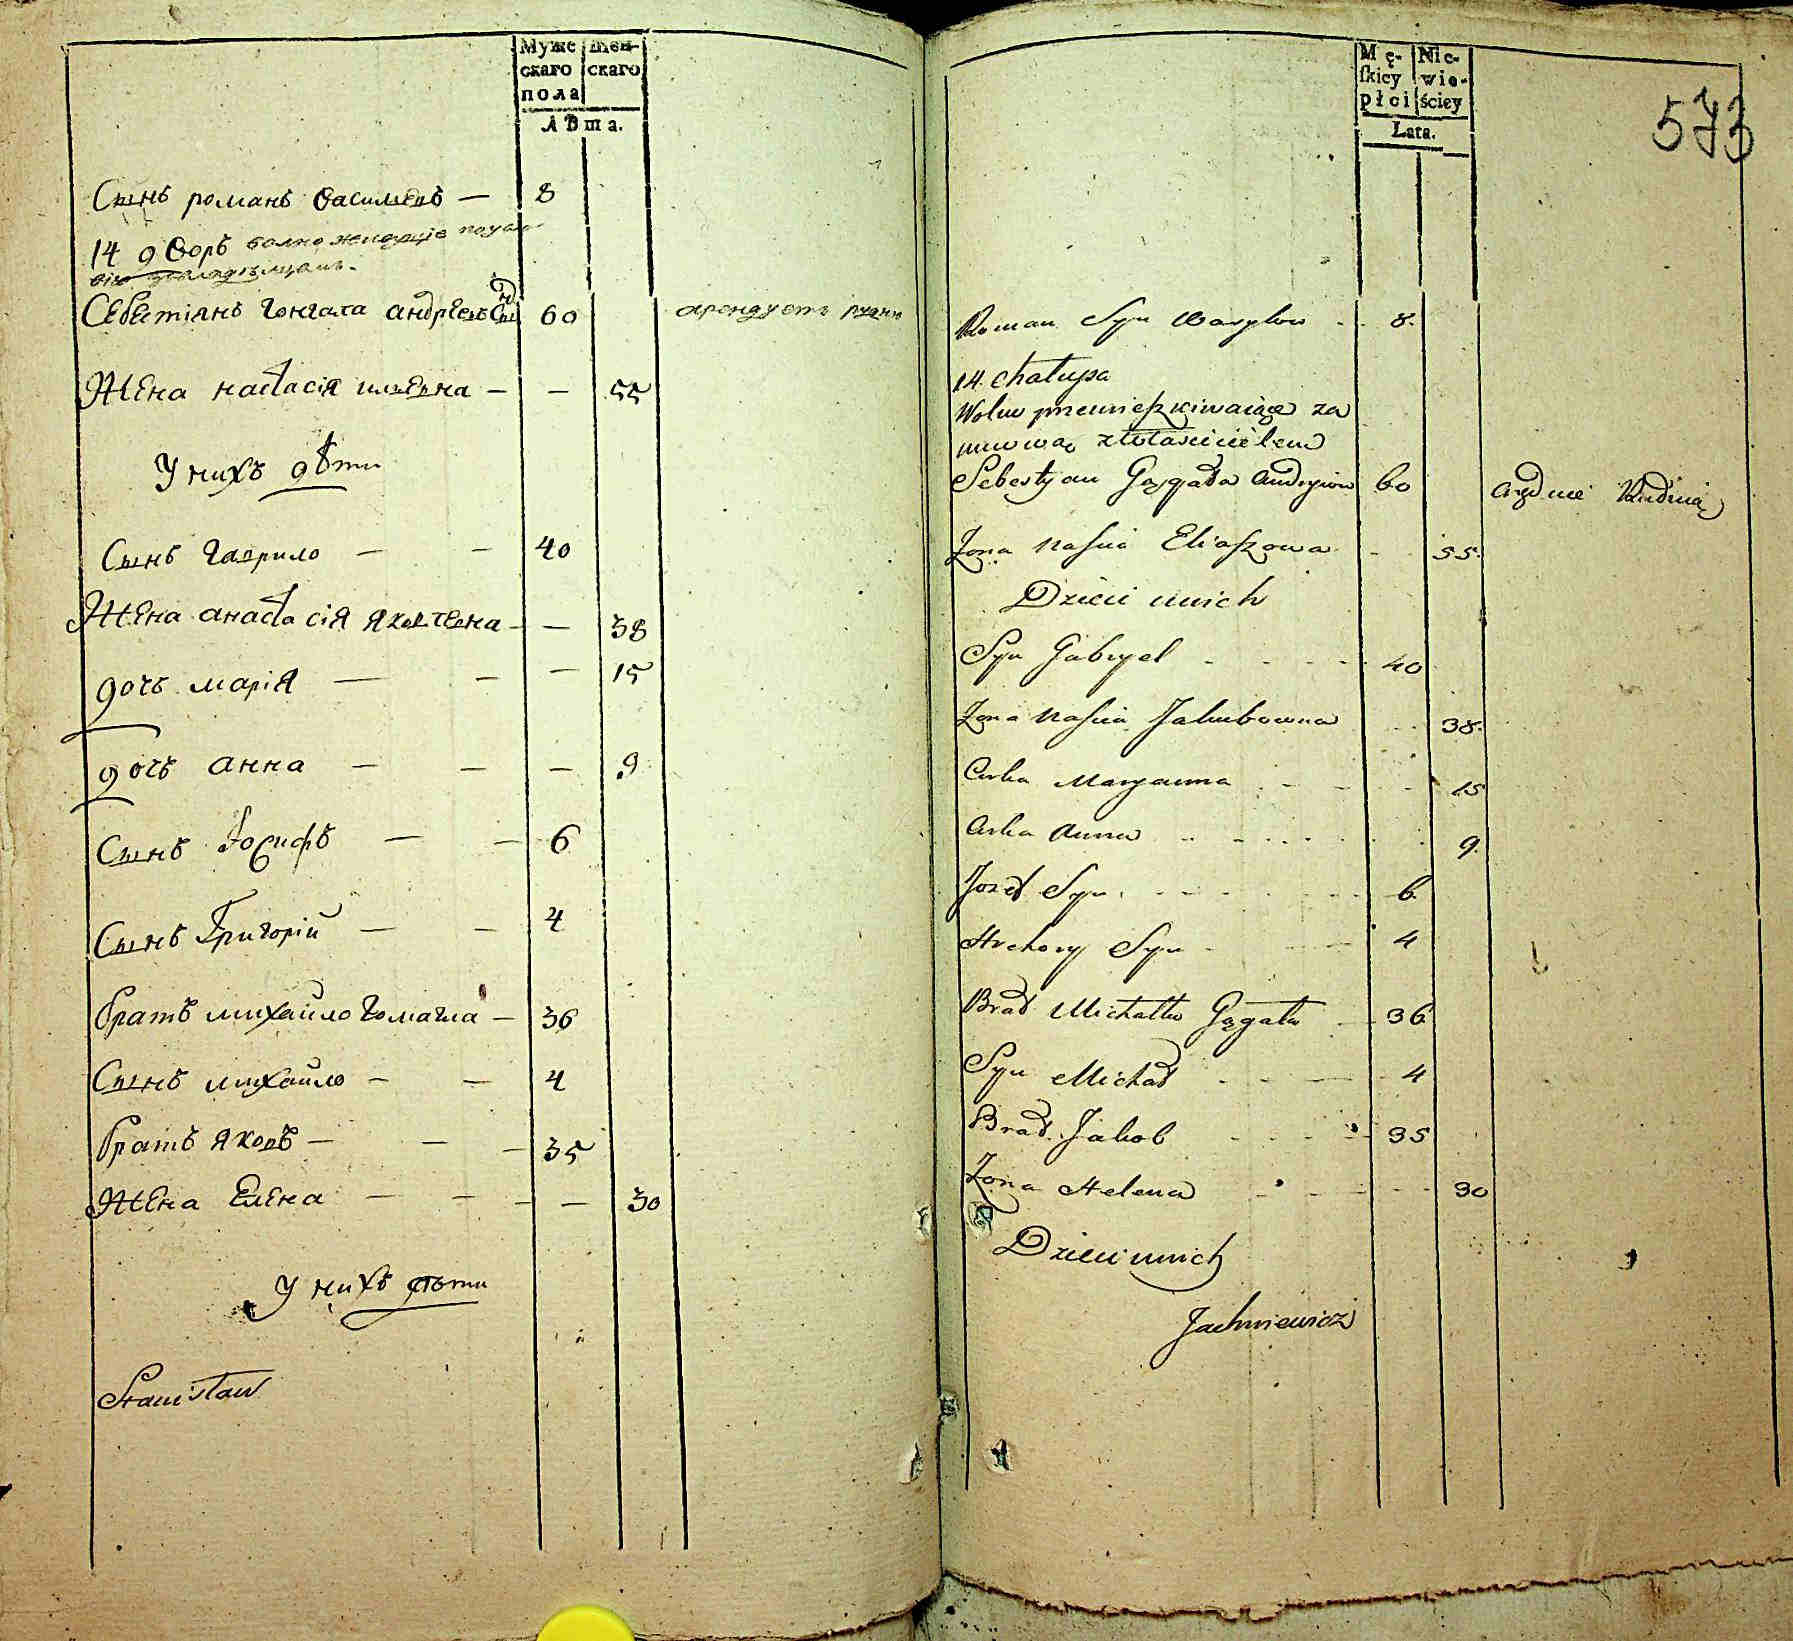 Муже Жен-
скаго скаго
пола
Лѣта.
Сынъ романъ василевъ — 8
14 дворъ волно живущіе
Себестіянъ гонгала андреевъ Сынъ 60 арендуетъ рудню
Жена настасія ильевна — — 55
У нихъ дѣти
Сынъ гаврило — — 40
Жена анастасія яковлевна — — 38
дочъ марія — — — 15
дочъ анна — — — 9
Сынъ Іосифъ — — 6
Сынъ Григорій — — 4
братъ михайло гомагла — 36
Сынъ михайло — — 4
братъ яковъ — — — 35
Жена Елена — — — — 30
У нихъ дѣти
Stanisław
Mę- Nie-
ſkiey wie-
płci ściey
Lata.
573
Roman Syn Wasylow 8.
14. Chałupa
Wolno przemieszkiwaiące za
umową z właścicielem
Sebestyan Gągała Andryiow 60 Rudnią
Żona Nascia Eliaszowa 55.
Dzieci u nich
Syn Gabryel 40
Żona Nascia Jakubowna 38.
Curka Maryanna 15
Curka Anna 9.
Jozef Syn 6.
Hrehory Syn 4
Brat Michałko Gągała 36
Syn Michał 4
Brat Jakob 35
Żona Helena 30
Dzieci u nich
Jachniewicz